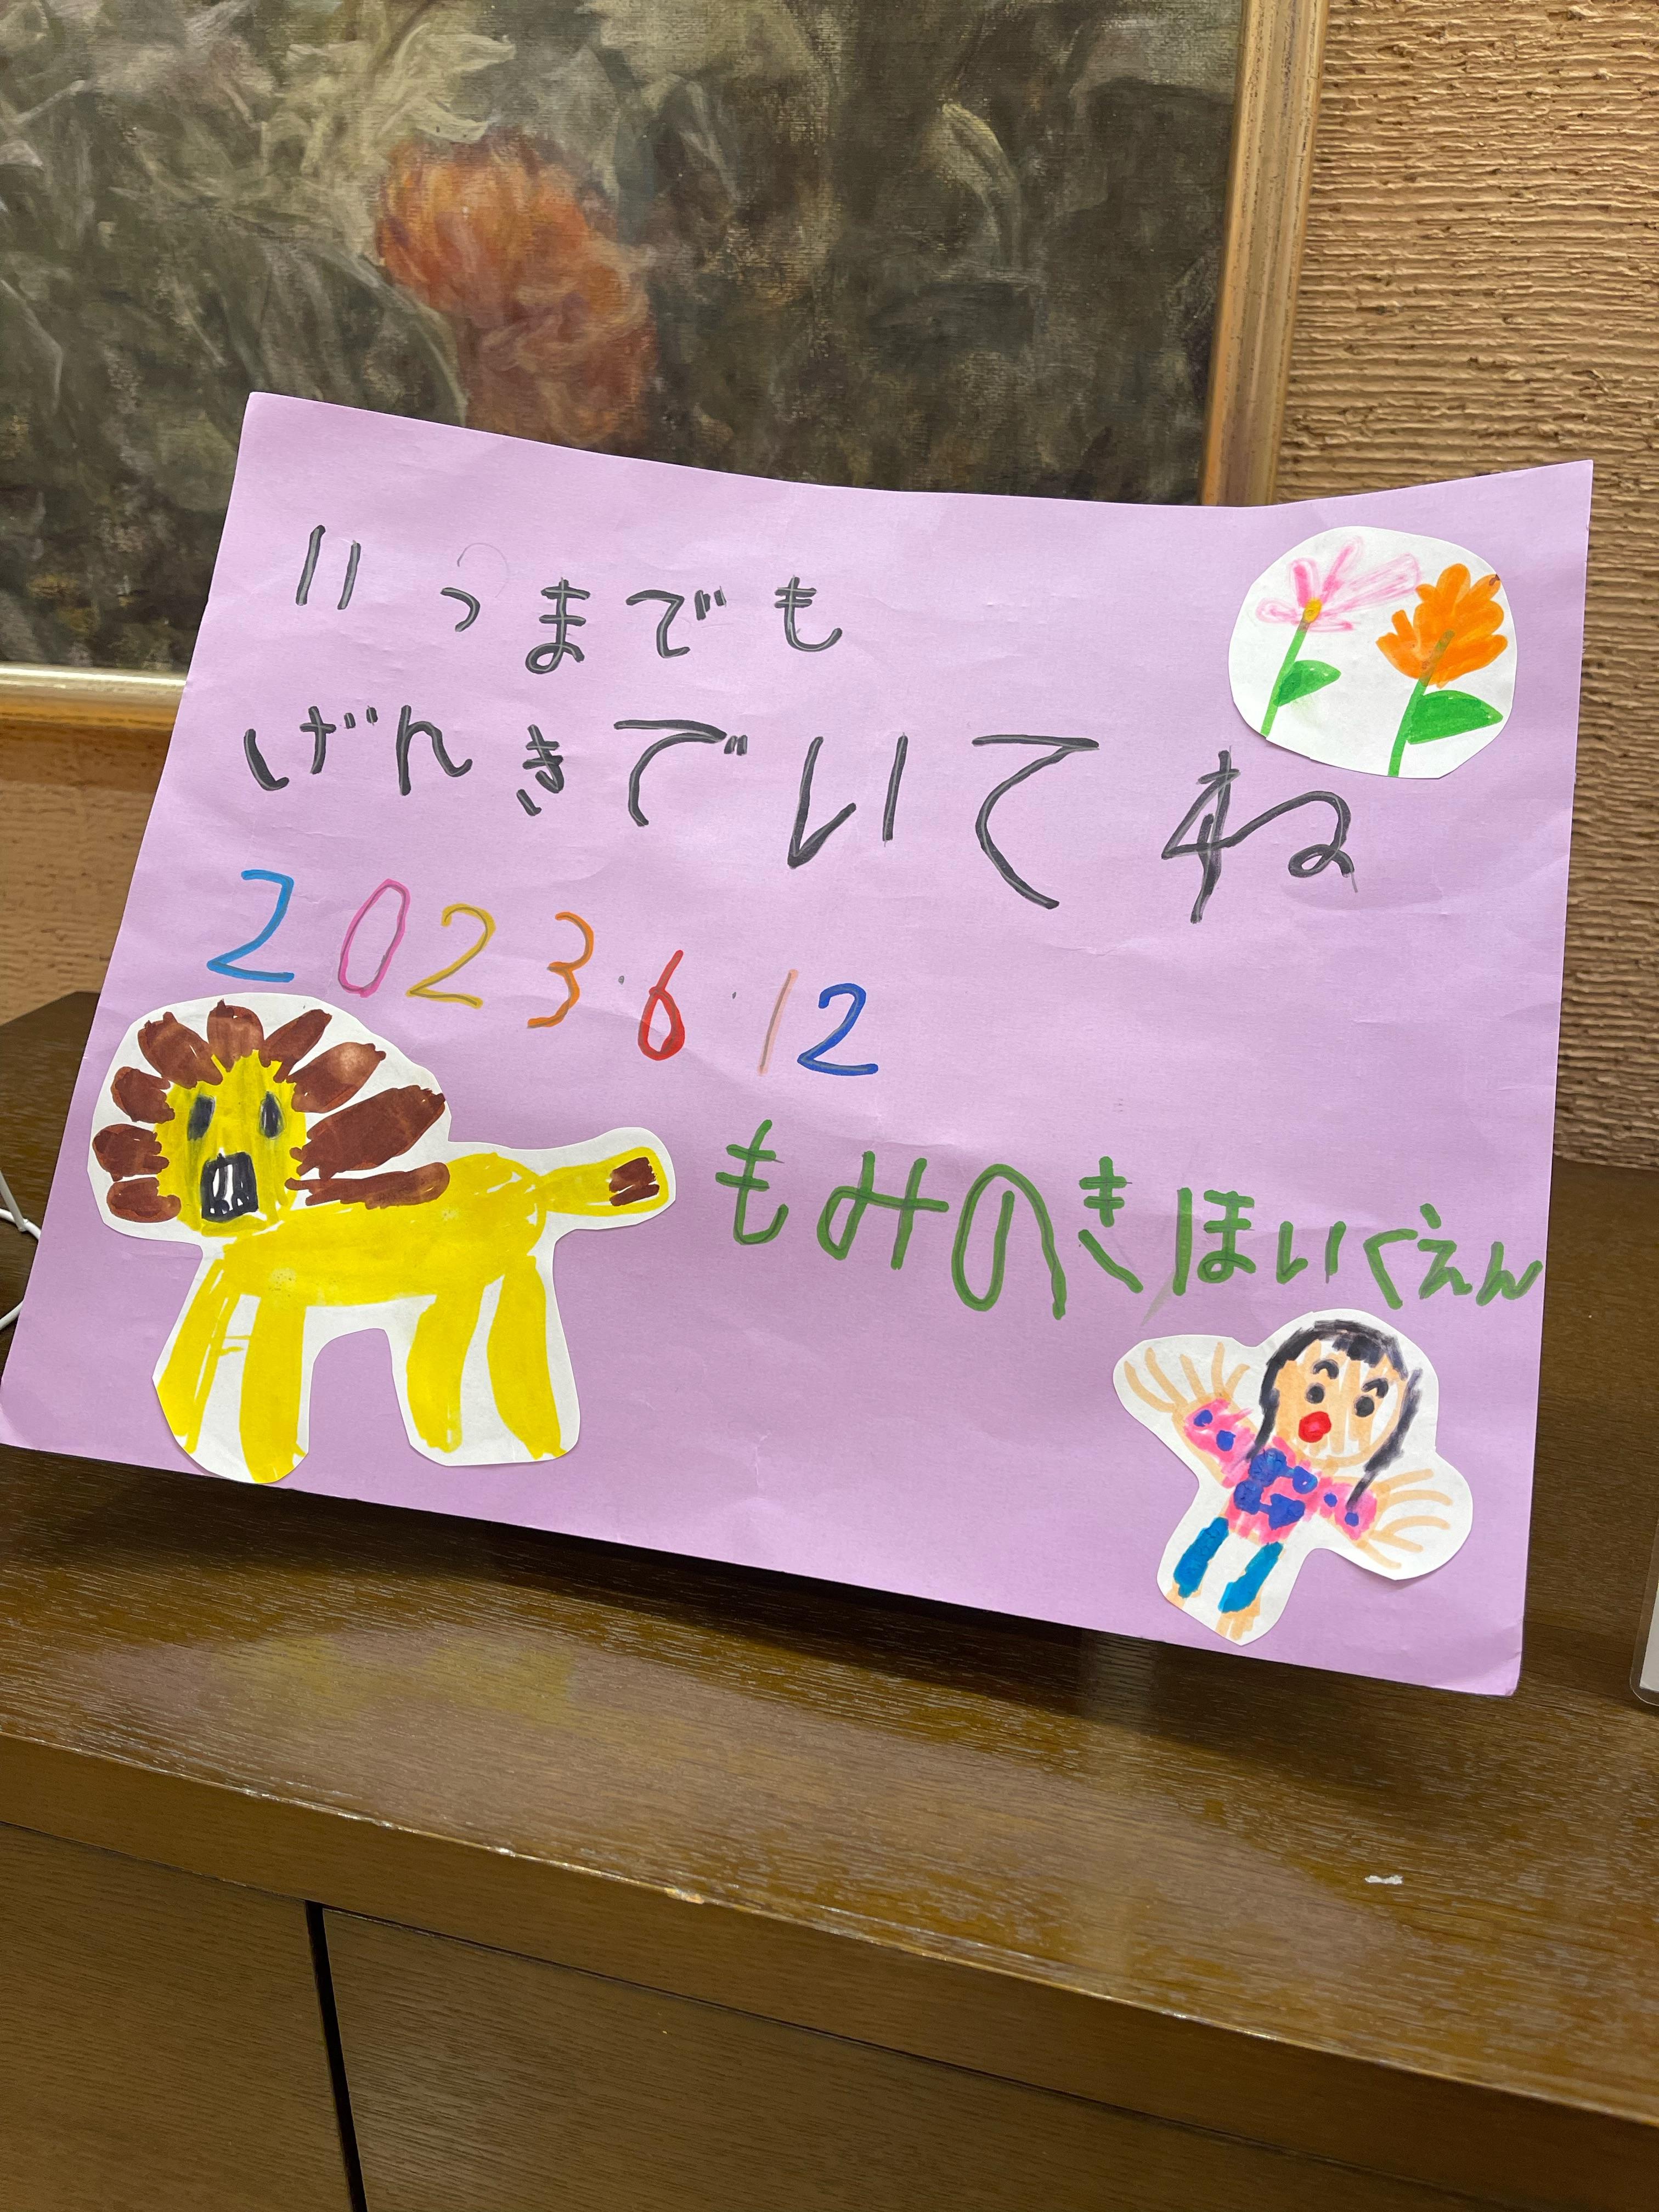 いつまでも
げんきでいてね
2023.6.12
もみのきほいくえん